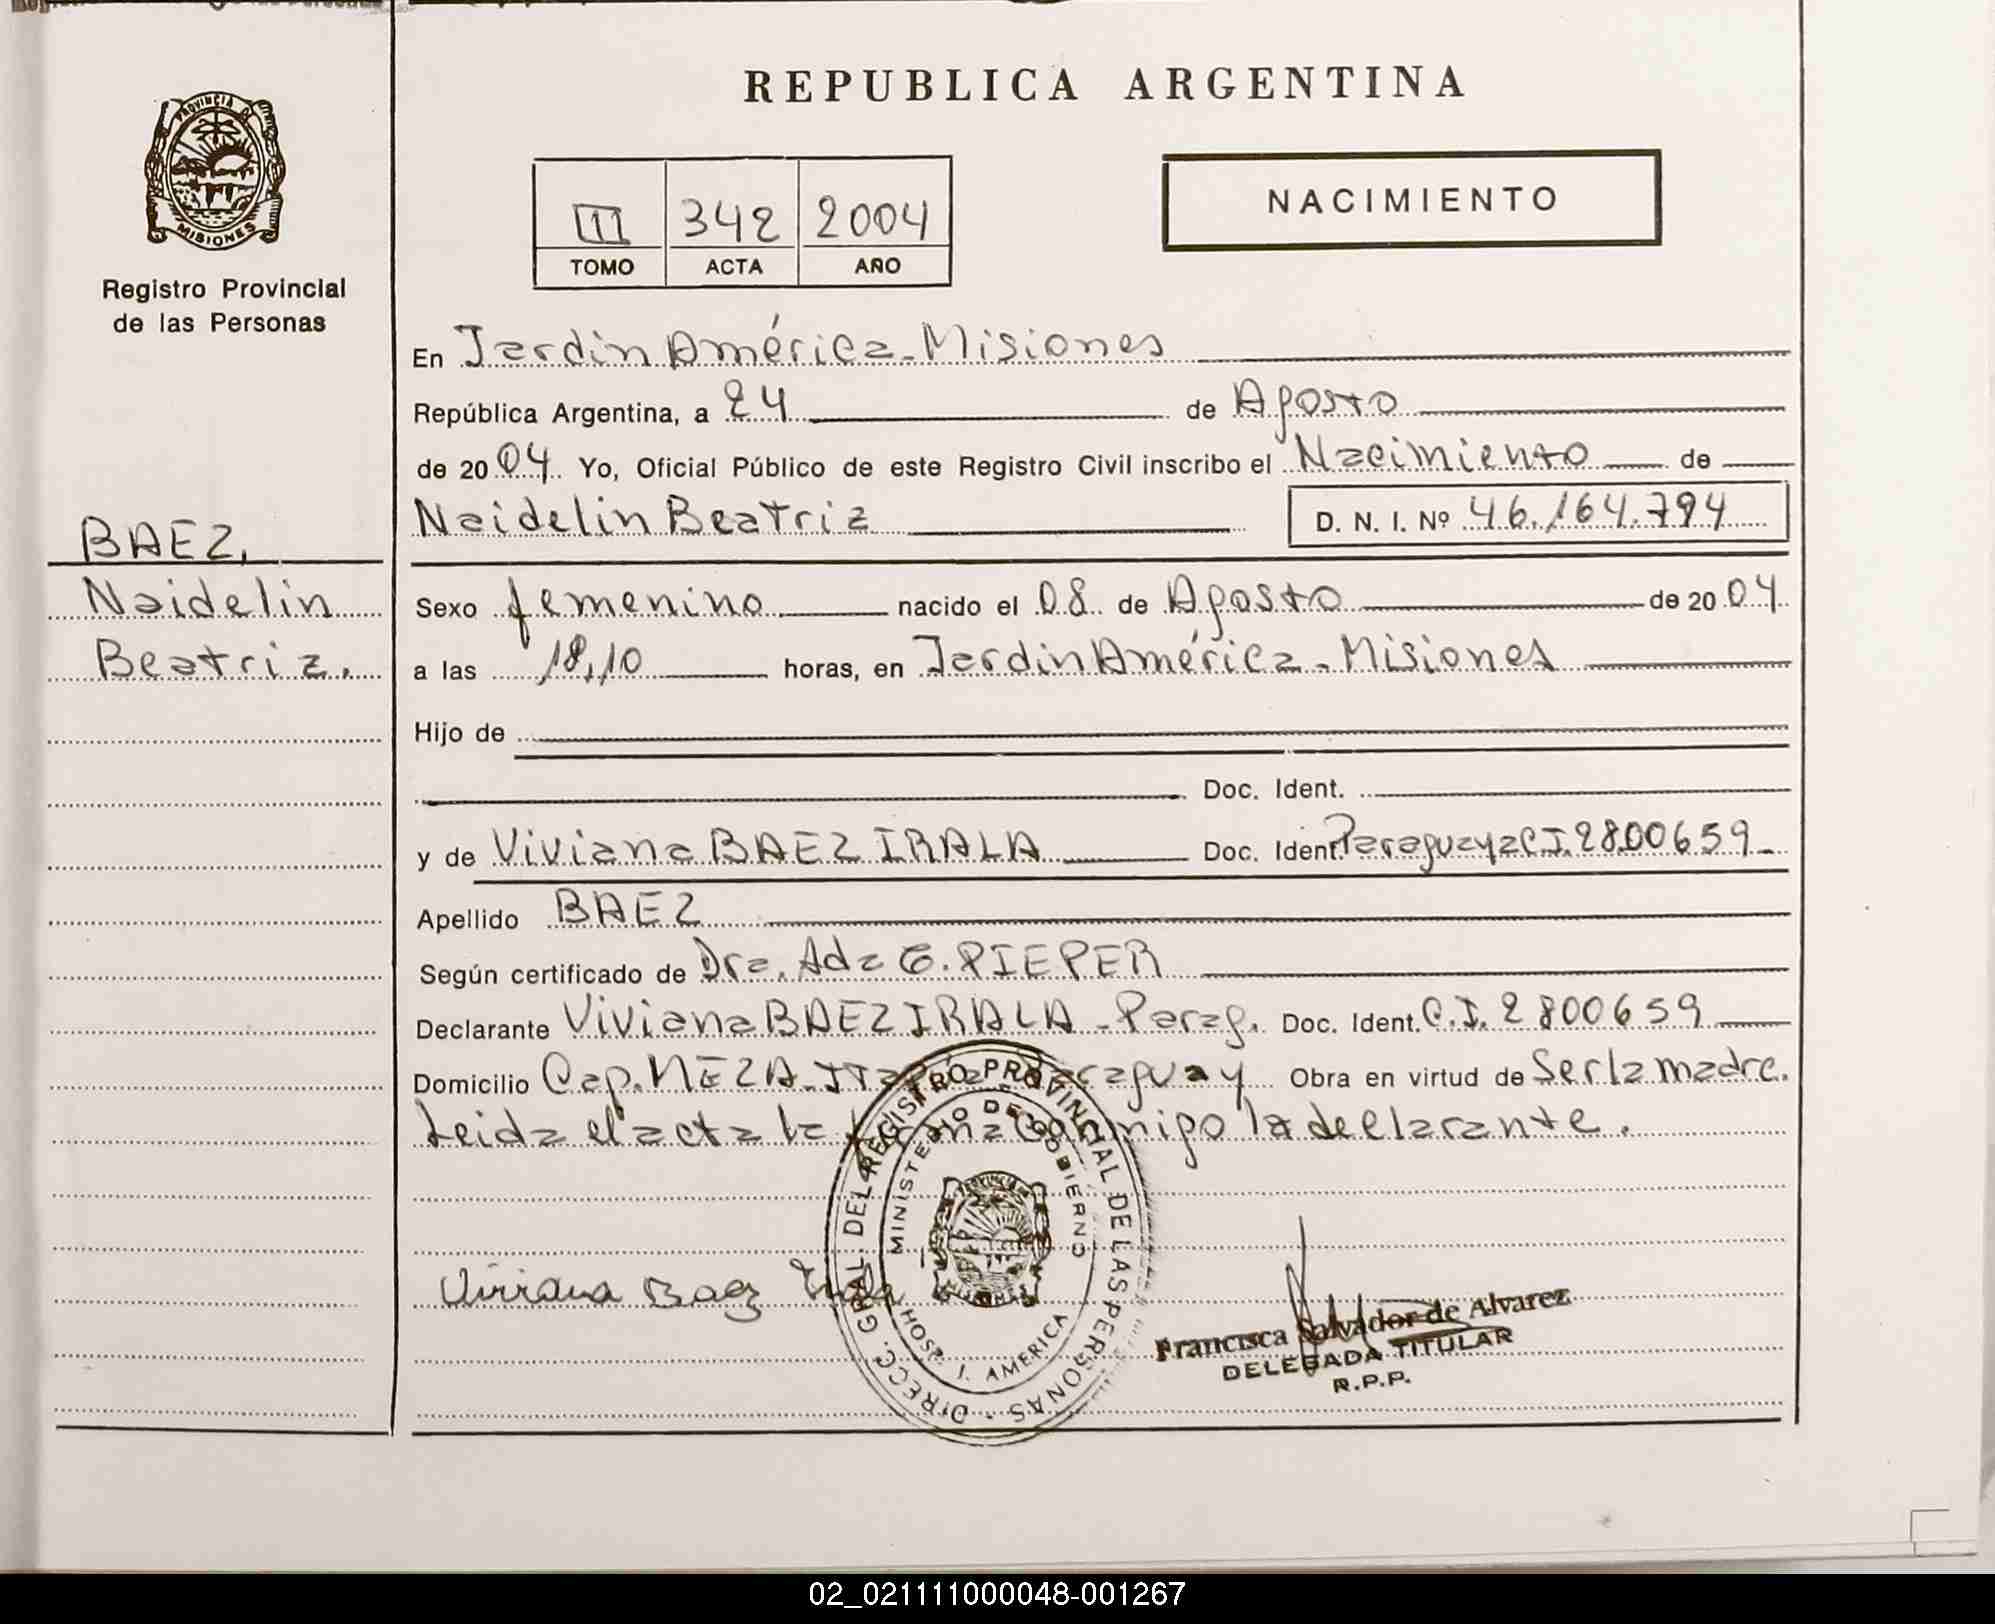 REPUBLICA ARGENTINA
PROVINCIA DE
MISIONES
Registro Provincial
de las Personas
III 342 2004
TOMO ACTA AÑO
NACIMIENTO
En Jardin América - Misiones
República Argentina, a 24 de Agosto
de 2004. Yo, Oficial Público de este Registro Civil inscribo el Nacimiento de
Naidelin Beatriz D. N. I. Nº 46.164.794
BAEZ,
Naidelin
Beatriz.
Sexo femenino nacido el 08 de Agosto de 2004
a las 18,10 horas, en Jardin América - Misiones
Hijo de
Doc. Ident.
y de Viviana BAEZ IRALA Doc. Ident. Paraguaya C.I. 2800659
Apellido BAEZ
Según certificado de Dra. Ada E. PIEPER
Declarante Viviana BAEZ IRALA - Parag. Doc. Ident. C.I. 2800659
Domicilio Cap. MEZA - Paraguay Obra en virtud de Ser la madre.
Leida el acta la firma conmigo la declarante.
DIRECC. GRAL. DEL REGISTRO PROVINCIAL DE LAS PERSONAS
MINISTERIO DE GOBIERNO
HOSP. J. AMERICA
Viviana Baez Irala
Francisca Salvador de Alvarez
DELEGADA TITULAR
R.P.P.
02_021111000048-001267